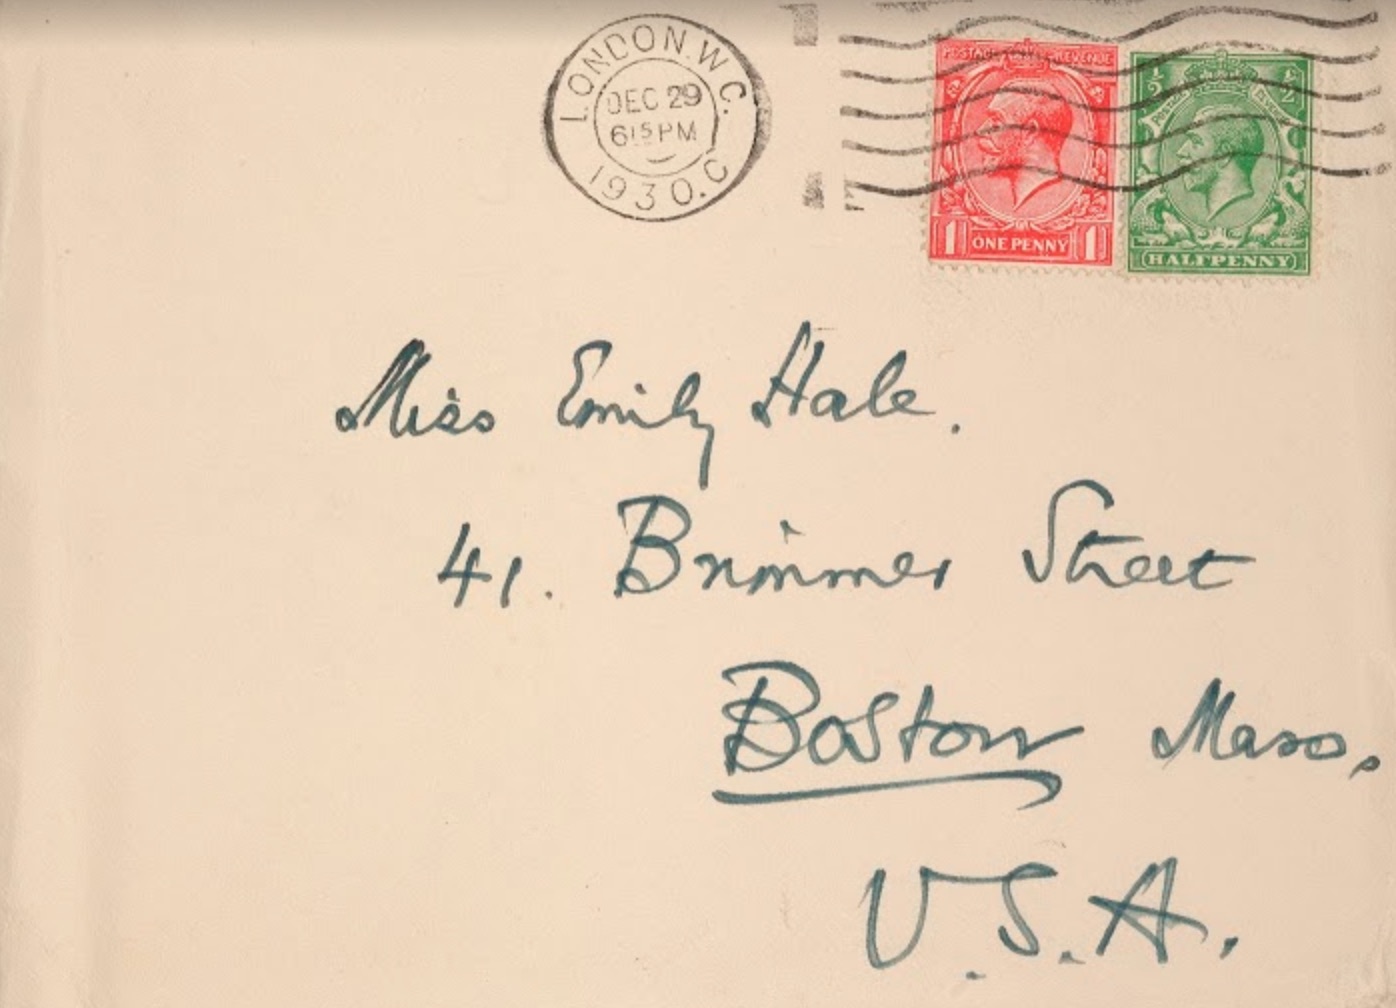 LONDON.W.C.
DEC 29
6 15 PM
1930. C
POSTAGE REVENUE
1 ONE PENNY 1
½ ½
HALFPENNY
Miss Emily Hale.
41. Brimmer Street
Boston Mass.
U.S.A.